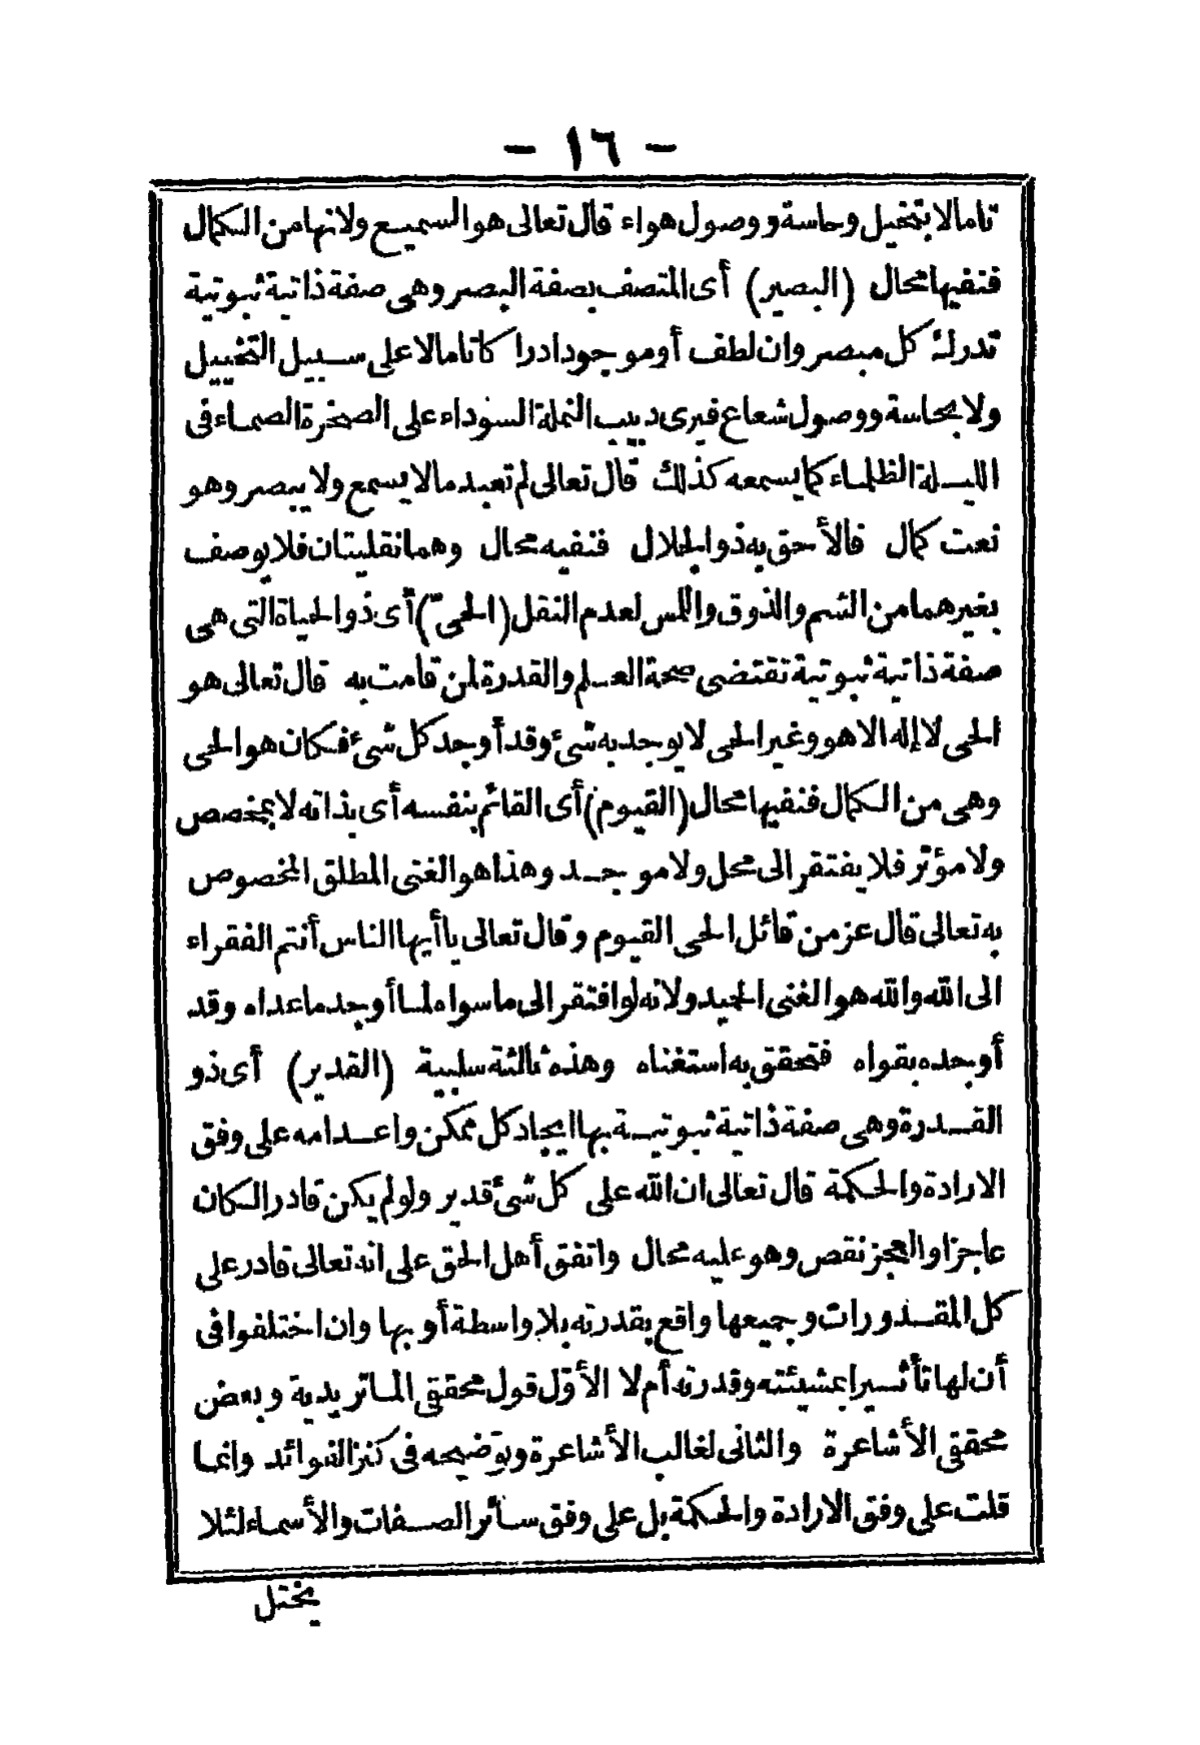 - ١٦ -
تاما لا بتخيل وحاسة ووصول هواء قال تعالى هو السميع ولانها من الكمال
فنفيها محال (البصير) أى المتصف بصفة البصر وهى صفة ذاتية ثبوتية
تدرك كل مبصر وان لطف أو موجود ادراكا تاما لا على سبيل التخييل
ولا بحاسة ووصول شعاع فيرى دبيب النملة السوداء على الصخرة الصماء فى
الليلة الظلماء كما يسمعه كذلك قال تعالى لم تعبد مالا يسمع ولا يبصر وهو
نعت كمال فالأحق به ذو الجلال فنفيه محال وهما نقليتان فلا يوصف
بغيرهما من الشم والذوق واللمس لعدم النقل (الحىّ) أى ذو الحياة التى هى
صفة ذاتية ثبوتية تقتضى صحة العلم والقدرة لمن قامت به قال تعالى هو
الحى لا إله الا هو وغير الحى لا يوجد به شئ وقد أوجد كل شئ فكان هو الحى
وهى من الكمال فنفيها محال (القيوم) أى القائم بنفسه أى بذاته لا بمخصص
ولا مؤثر فلا يفتقر الى محل ولا موجد وهذا هو الغنى المطلق المخصوص
به تعالى قال عز من قائل الحى القيوم وقال تعالى يا أيها الناس أنتم الفقراء
الى الله والله هو الغنى الحميد ولانه لو افتقر الى ما سواه لما أوجد ما عداه وقد
أوجده بقواه فتحقق به استغناه وهذه ثالثة سلبية (القدير) أى ذو
القدرة وهى صفة ذاتية ثبوتية بها ايجاد كل ممكن واعدامه على وفق
الارادة والحكمة قال تعالى ان الله على كل شئ قدير ولو لم يكن قادرا لكان
عاجزا والعجز نقص وهو عليه محال واتفق أهل الحق على انه تعالى قادر على
كل المقدورات وجميعها واقع بقدرته بلا واسطة أو بها وان اختلفوا فى
أن لها تأثيرا بمشيئته وقدرته أم لا الأوّل قول محققى الماتريدية وبعض
محققى الأشاعرة والثانى لغالب الأشاعرة وتوضيحه فى كنز الفوائد وانما
قلت على وفق الارادة والحكمة بل على وفق سائر الصفات والأسماء لئلا
يختل